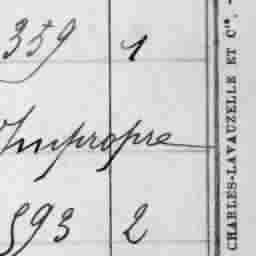 359 1
Impropre
593 2
CHARLES-LAVAUZELLE ET Cie. -